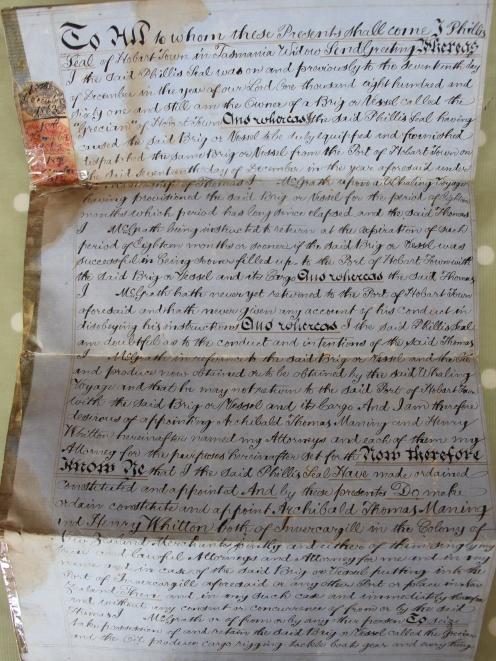 To All to whom these Presents shall come I Phillis
Seal of Hobart Town in Tasmania Widow Send Greeting Whereas
I the said Phillis Seal was on and previously to the seventeenth day
of December in the year of our Lord One thousand eight hundred and
sixty one and still am the Owner of a Brig or Vessel called the
"Grecian" of Hobart Town And whereas I the said Phillis Seal having
caused the said Brig or Vessel to be duly equipped and furnished
despatched the same Brig or Vessel from the Port of Hobart Town on
the said Seventeenth day of December in the year aforesaid under
the of Thomas J McGrath upon a Whaling Voyage
having provisioned the said Brig or Vessel for the period of Eighteen
months which period has long since elapsed and the said Thomas
J McGrath being instructed to return at the expiration of such
period of Eighteen months or sooner if the said Brig or Vessel was
successful in being sooner filled up to the Port of Hobart Town with
the said Brig or Vessel and its Cargo And whereas the said Thomas
J McGrath hath never yet returned to the Port of Hobart Town
aforesaid and hath never given any account of his conduct in
disobeying his instructions And whereas I the said Phillis Seal
am doubtful as to the conduct and intentions of the said Thomas
J McGrath in reference to the said Brig or Vessel and the
and produce now obtained or to be obtained by the said Whaling
Voyage and that he may not return to the said Port of Hobart Town
with the said Brig or Vessel and its Cargo And I am therefore
desirous of appointing Archibald Thomas Maning and Henry
Whitton hereinafter named my Attorneys and each of them my
Attorney for the purposes hereinafter set forth Now therefore
Know Ye that I the said Phillis Seal Have made ordained
constituted and appointed And by these presents Do make
ordain constitute and appoint Archibald Thomas Maning
and Henry Whitton both of Invercargill in the Colony of
New Zealand Merchants jointly and either of them singly my
true and lawful Attorneys and Attorney for me and in my
name and in case of the said Brig or Vessel putting into the
Port of Invercargill aforesaid or any other Port or place in New
Zealand Then and in any such case and immediately thereupon
and without any consent or concurrence of from or by the said
McGrath or of from or by any other person To seize
take possession of and retain the said Brig or Vessel called the Grecian
and the Oil produce cargo rigging tackle boats gear and everything